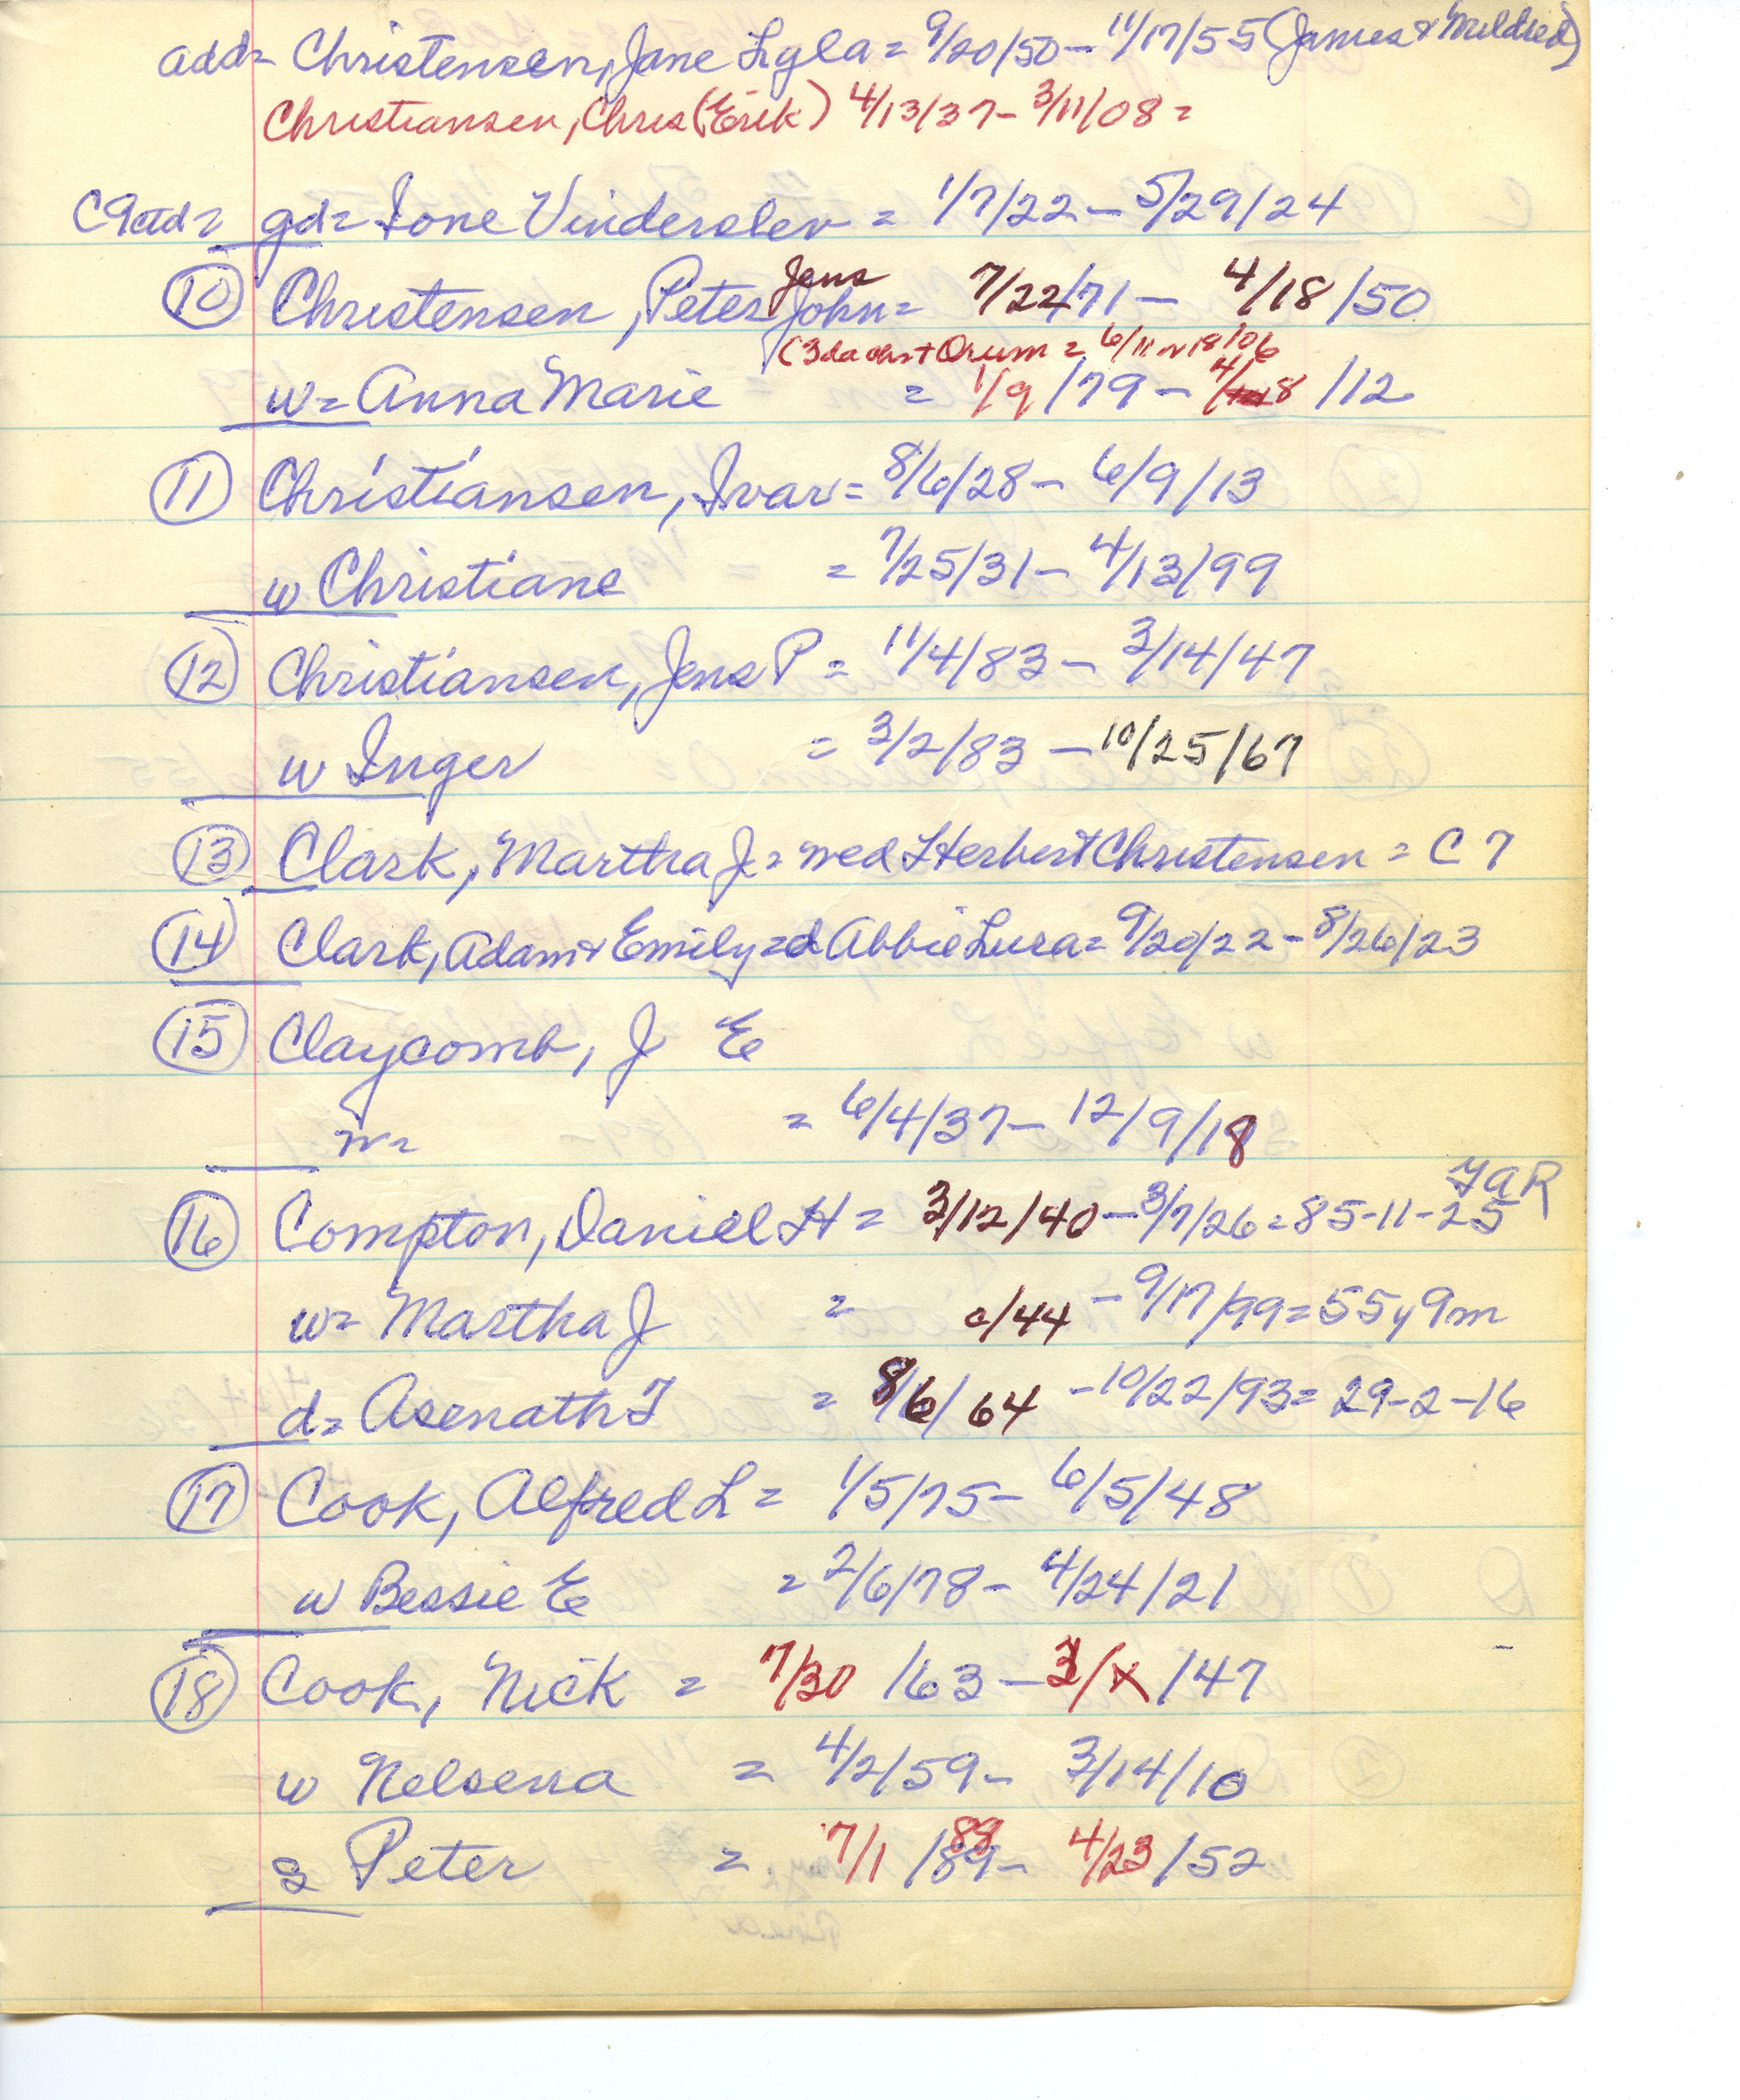 add= Christensen, Jane Lyla = 9/20/50 - 11/17/55 (James & Mildred)
Christiansen, Chris (Erik) 4/13/37 - 3/11/08 =
C9 ctd= gd= Ione Vinderslev = 1/7/22 - 5/29/24
Jens
10 Christensen, Peter John = 7/22/71 - 4/18/50
(3da chs + Orum = 6/11 or 18/06
w= Anna Marie = 1/9/79 - 4/8/12
11 Christiansen, Ivar = 8/6/28 - 6/9/13
w Christiane = 7/25/31 - 4/13/99
12 Christiansen, Jens P = 11/4/83 - 3/14/47
w Inger = 3/2/83 - 10/25/67
13 Clark, Martha J = wed L Herbert Christensen = C7
14 Clark, Adam & Emily = d Abbie Lura = 9/20/22 - 8/26/23
15 Claycomb, J E
w= = 6/4/37 - 12/9/18
GAR
16 Compton, Daniel H = 3/12/40 - 3/7/26 = 85-11-25
w= Martha J = c/44 - 9/17/99 = 55y9m
d= Asenath T = 8/6/64 - 10/22/93 = 29-2-16
17 Cook, Alfred L = 1/5/75 - 6/5/48
w Bessie E = 2/6/78 - 4/24/21
18 Cook, Nick = 7/30/63 - 3/x/47
w Nelsena = 4/2/59 - 3/14/10
88
s Peter = 7/1/89 - 4/23/52